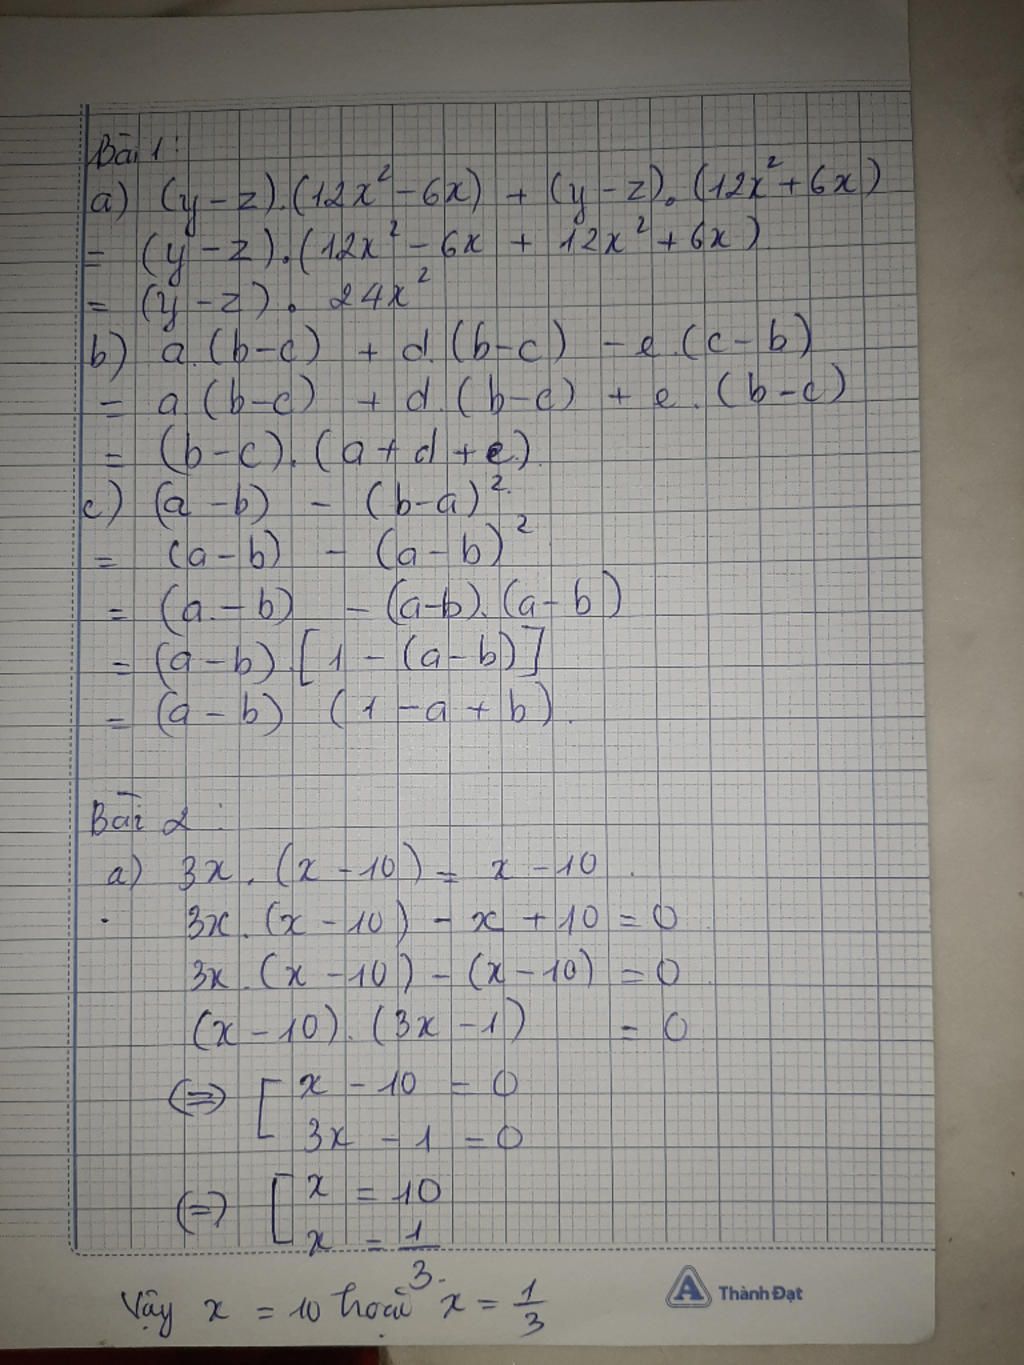 Bài 1:
a) (y - z).(12x² - 6x) + (y - z).(12x² + 6x)
= (y - z).(12x² - 6x + 12x² + 6x)
= (y - z). 24x²
b) a.(b-c) + d.(b-c) - e.(c-b)
= a.(b-c) + d.(b-c) + e.(b-c)
= (b-c).(a+d+e).
c) (a-b) - (b-a)².
= (a-b) - (a-b)²
= (a-b) - (a-b).(a-b)
= (a-b).[1-(a-b)]
= (a-b) (1-a+b).
Bài 2:
a) 3x.(x-10) = x-10.
3x.(x-10) - x + 10 = 0
3x.(x-10) - (x-10) = 0
(x-10).(3x-1) = 0
(=) [ x - 10 = 0
3x - 1 = 0
(=) [ x = 10
x = 1/3.
Vậy x = 10 hoặc x = 1/3
Thành Đạt